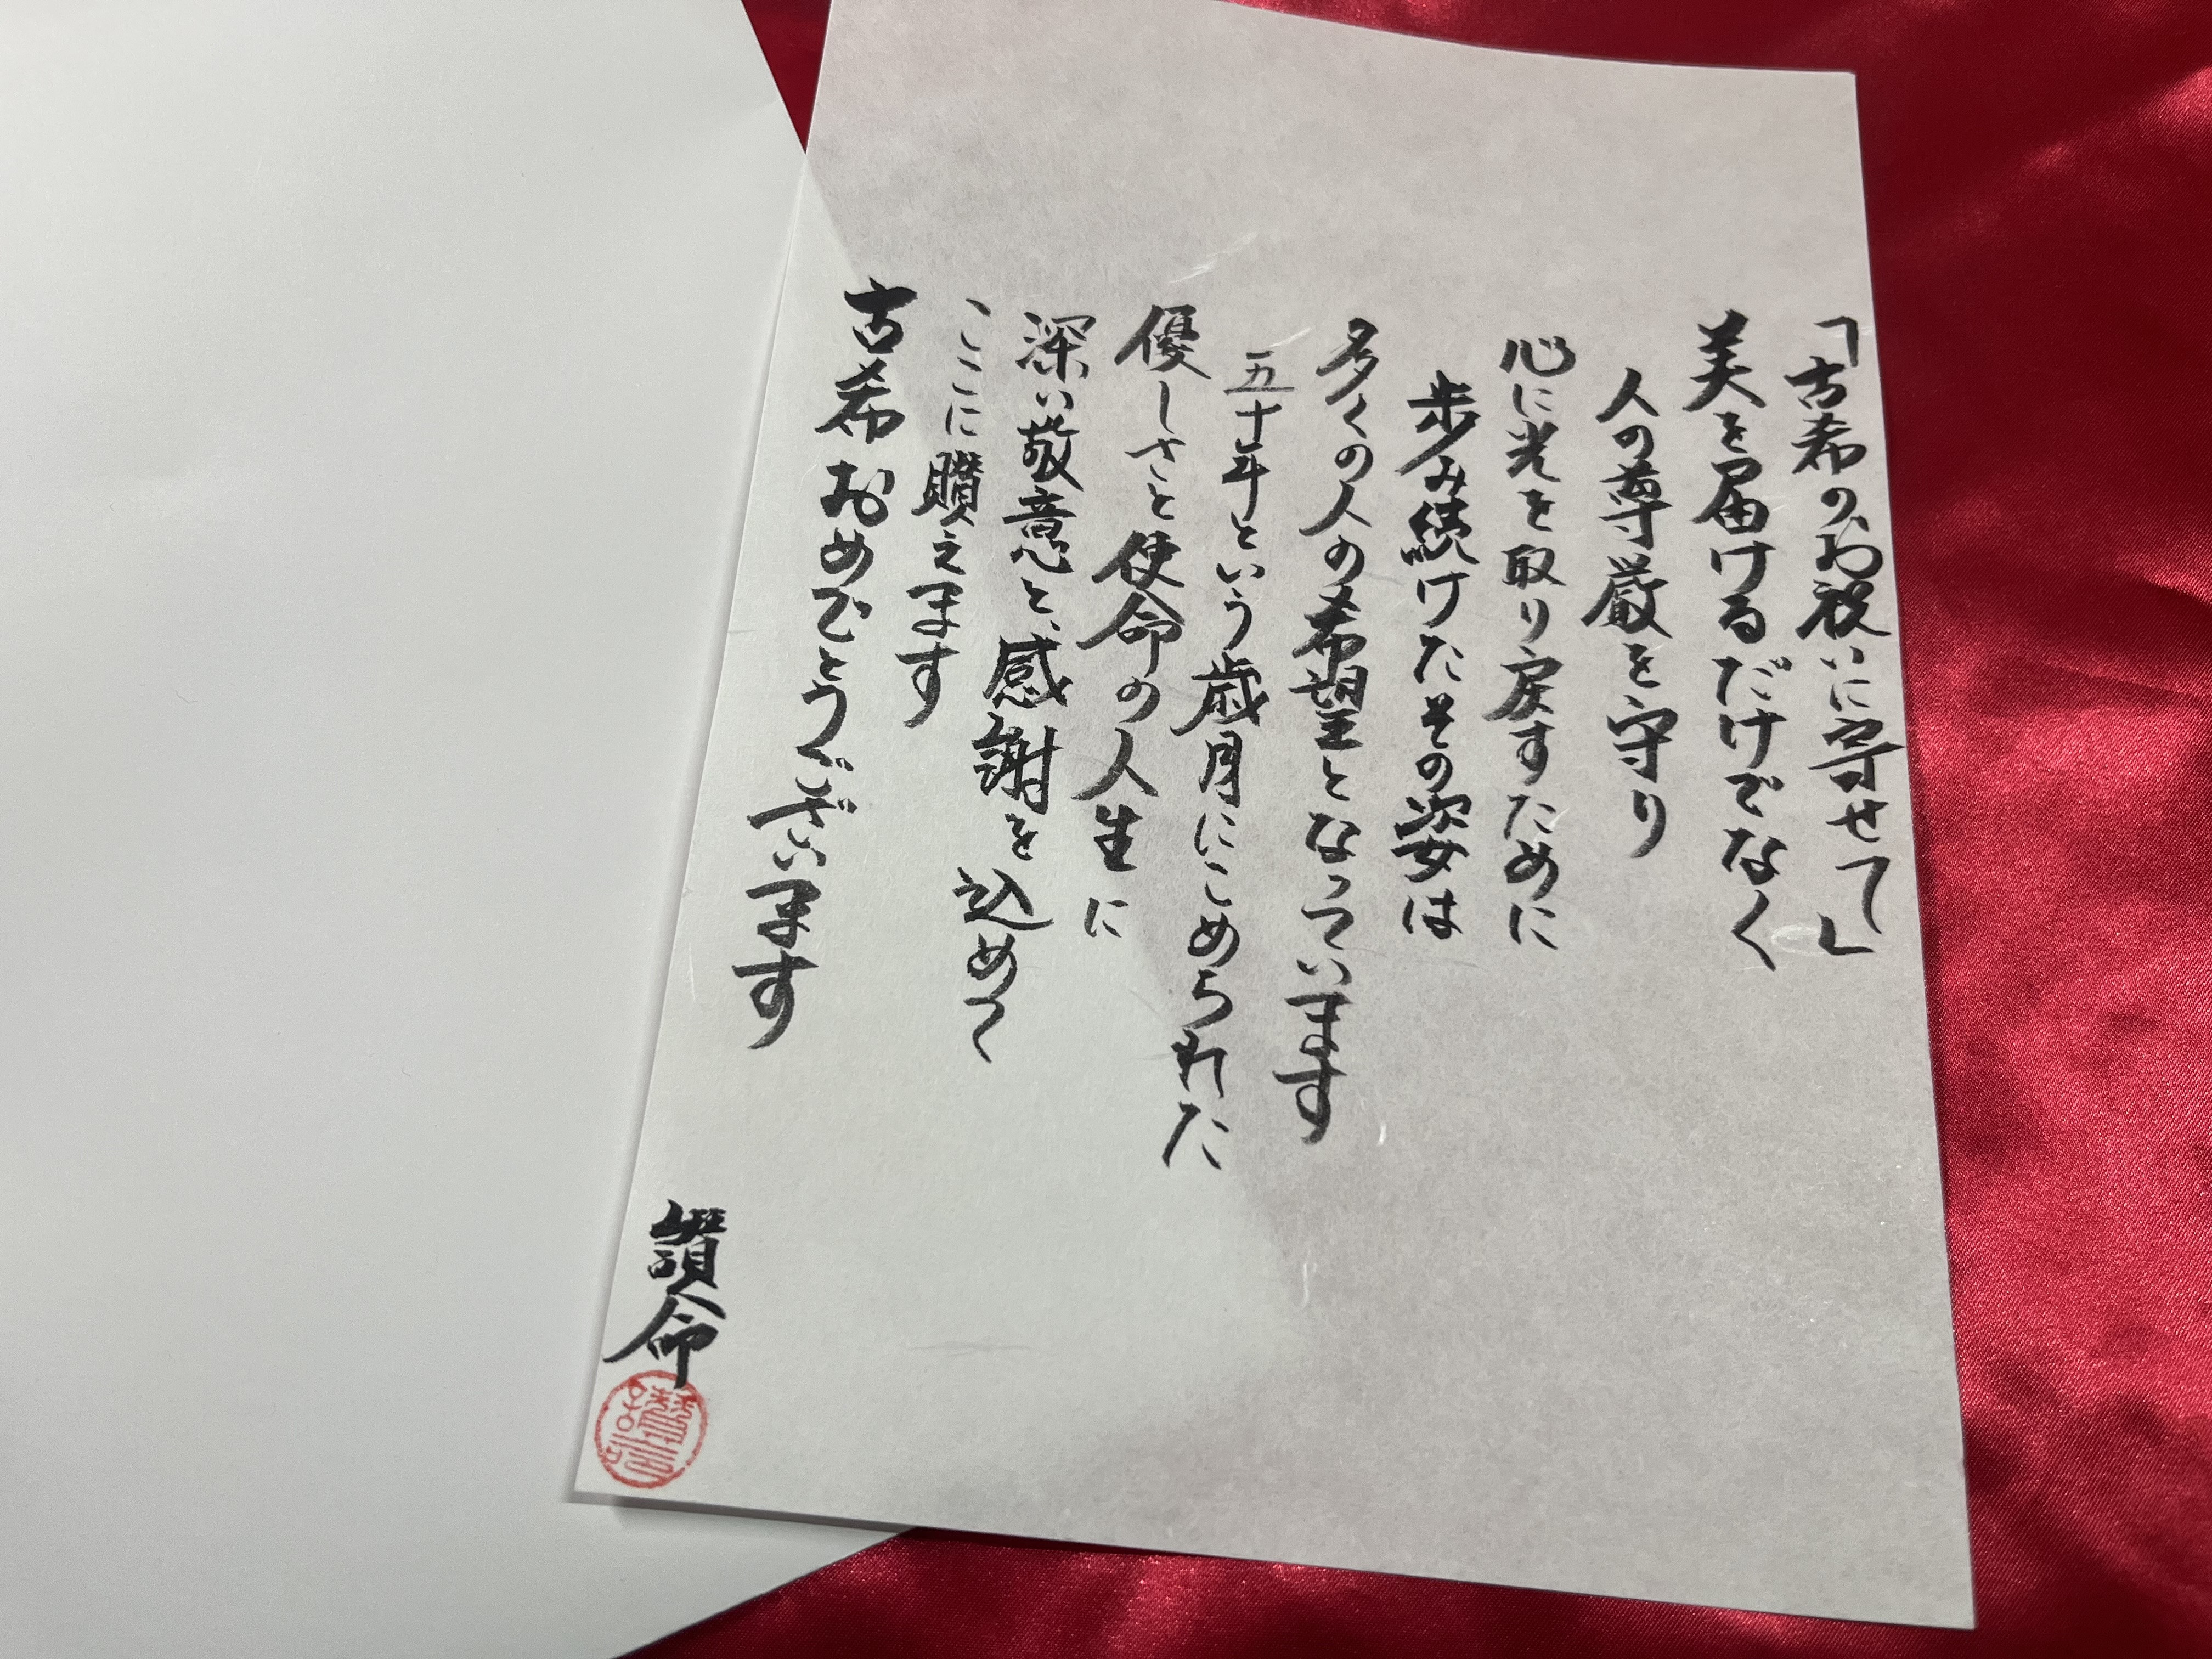 「古希のお祝いに寄せて」
美を届けるだけでなく
人の尊厳を守り
心に光を取り戻すために
歩み続けたその姿は
多くの人の希望となっています
五十年という歳月にこめられた
優しさと使命の人生に
深い敬意と、感謝を込めて
ここに讃えます
古希おめでとうございます
讃命